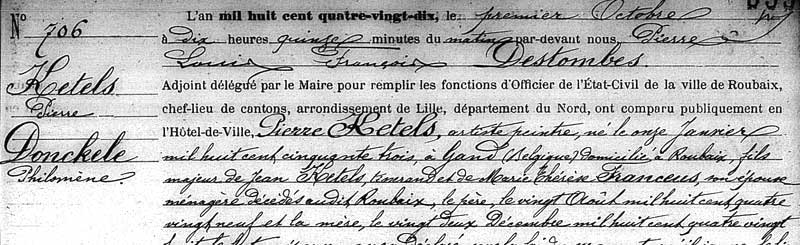 L'an mil huit cent quatre-vingt-dix, le premier Octobre
N° 706
à dix heures quinze minutes du matin par-devant nous, Pierre
Louis François Destombes
Ketels
Pierre
Donckele
Philomène.
Adjoint délégué par le Maire pour remplir les fonctions d'Officier de l'État-Civil de la ville de Roubaix,
chef-lieu de cantons, arrondissement de Lille, département du Nord, ont comparu publiquement en
l'Hôtel-de-Ville, Pierre Ketels, artiste peintre, né le onze Janvier
mil huit cent cinquante trois, à Gand (Belgique) domicilié à Roubaix, fils
majeur de Jean Ketels, et de Marie Thérèse Franceus, son épouse
ménagère décédés audit Roubaix, le père, le vingt Août mil huit cent quatre
vingt neuf et la mère, le vingt deux Décembre mil huit cent quatre vingt